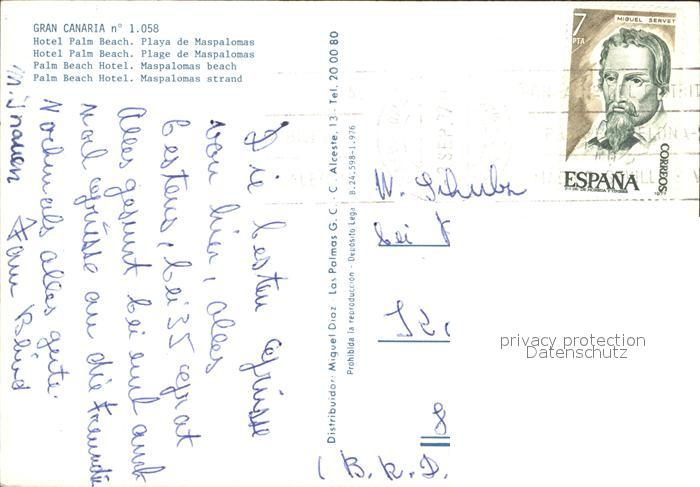 GRAN CANARIA n° 1.058
Hotel Palm Beach. Playa de Maspalomas
Hotel Palm Beach. Plage de Maspalomas
Palm Beach Hotel. Maspalomas beach
Palm Beach Hotel. Maspalomas strand
Die besten Grüsse
von hier, alles
bestens, bei 35 Grat
Alles gesunt bei
noch Grüsse an die Freunde
Nochmals alles gute.
Fam
Distribuidor: Miguel Diaz - Las Palmas G. C. - C. Alceste, 13 - Tel. 20 00 80
Prohibida la reproducción - Depósito Legal B. 24.598-1.976
7 PTA
MIGUEL SERVET
CORREOS
ESPAÑA
W. Schulz
bei
8
(B.R.D.
privacy protection
Datenschutz